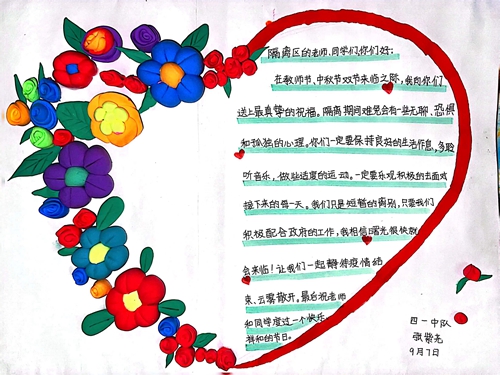 隔离区的老师、同学们你们好:
在教师节、中秋节双节来临之际,我向你们
送上最真挚的祝福。隔离期间难免会有一些无聊、恐惧
和孤独的心理。你们一定要保持良好的生活作息,多聆
听音乐,做些适度的运动。一定要乐观积极的去面对
接下来的每一天。我们只是短暂的离别,只要我们
积极配合政府的工作,我相信曙光很快就
会来临!让我们一起静待疫情结
束、云雾散开。最后祝老师
和同学度过一个快乐
祥和的节日。
四一中队
张紫光
9月7日